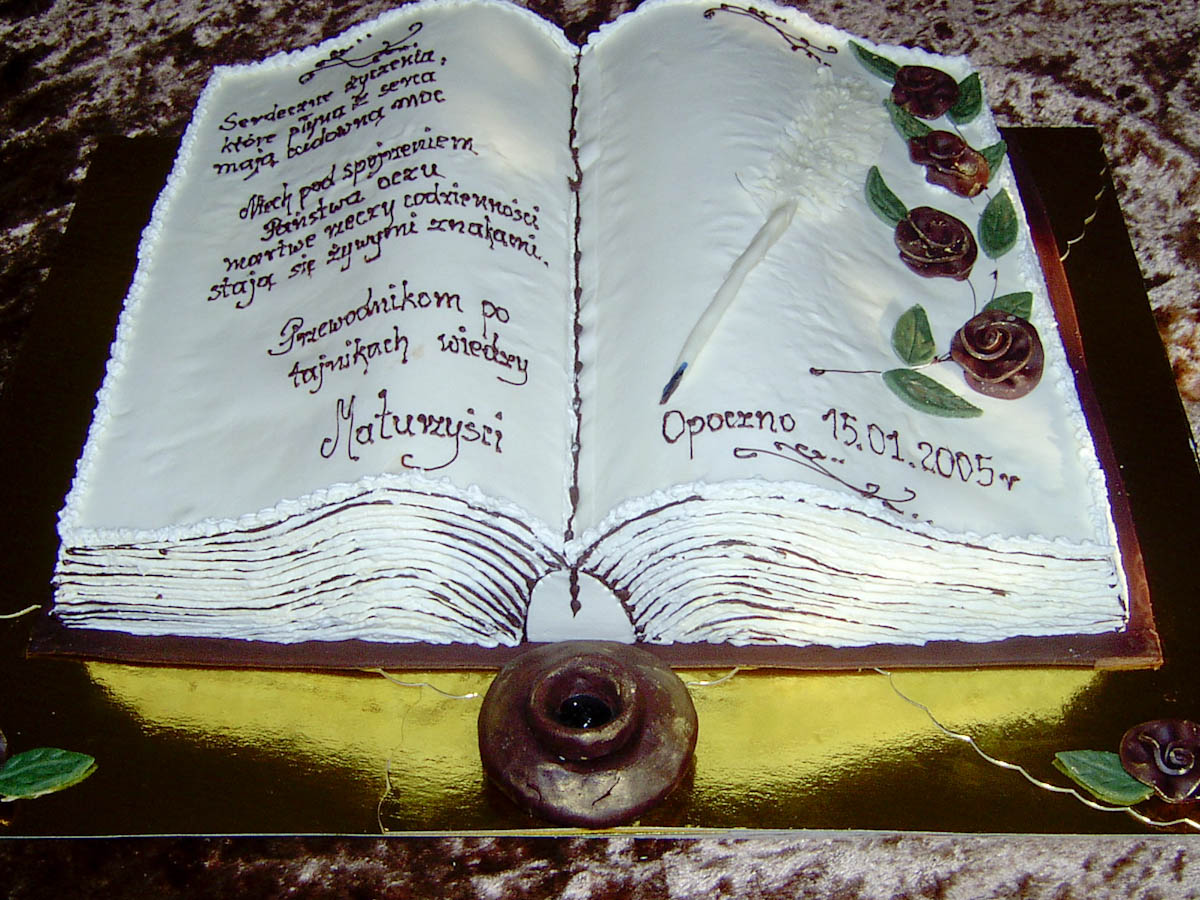 Serdeczne życzenia,
które płyną z serca
mają cudowną moc
Niech pod spojrzeniem
Państwa oczu
martwe rzeczy codzienności
stają się żywymi znakami.
Przewodnikom po
tajnikach wiedzy
Maturzyści
Opoczno 15.01.2005r